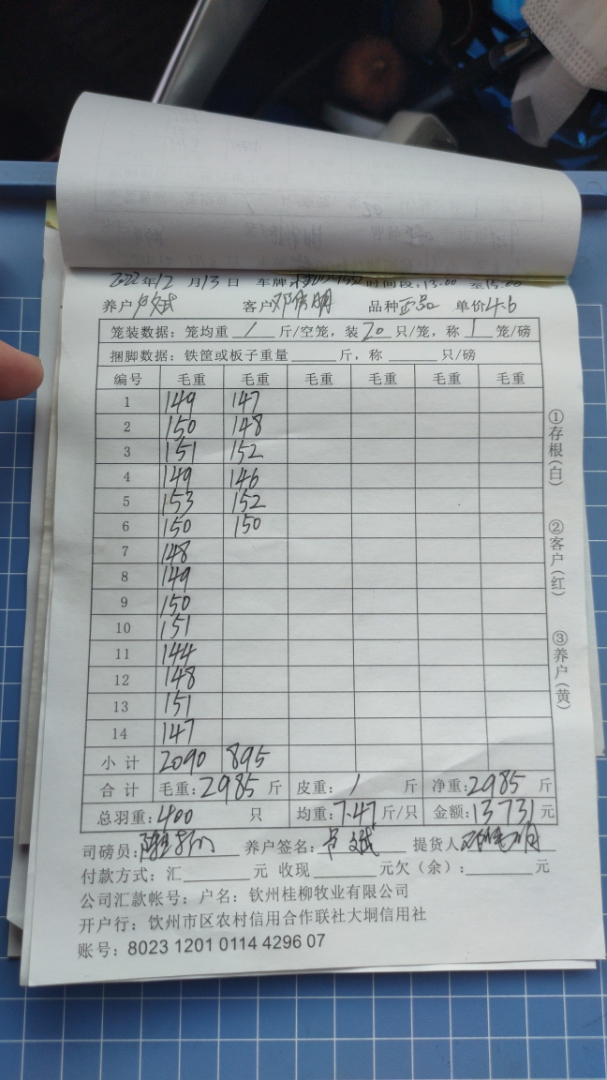 2022年12月13日 车牌 时间段:13:00 至15:00
养户 卢斌 客户 邓伟明 品种 正品 单价4.6
笼装数据：笼均重 / 斤/空笼，装 20 只/笼，称 1 笼/磅
捆脚数据：铁筐或板子重量 斤，称 只/磅
编号 毛重 毛重 毛重 毛重 毛重 毛重
1 149 147
2 150 148
3 151 152
4 149 146
5 153 152
6 150 150
7 148
8 149
9 150
10 151
11 144
12 148
13 151
14 147
小计 2090 895
合计 毛重:2985 斤 皮重: / 斤 净重:2985 斤
总羽重:400 只 均重:7.47 斤/只 金额:13731 元
司磅员: 养户签名: 卢斌 提货人
付款方式：汇 元 收现 元欠（余）: 元
公司汇款帐号：户名：钦州桂柳牧业有限公司
开户行：钦州市区农村信用合作联社大垌信用社
账号：8023 1201 0114 4296 07
①存根(白) ②客户(红) ③养户(黄)